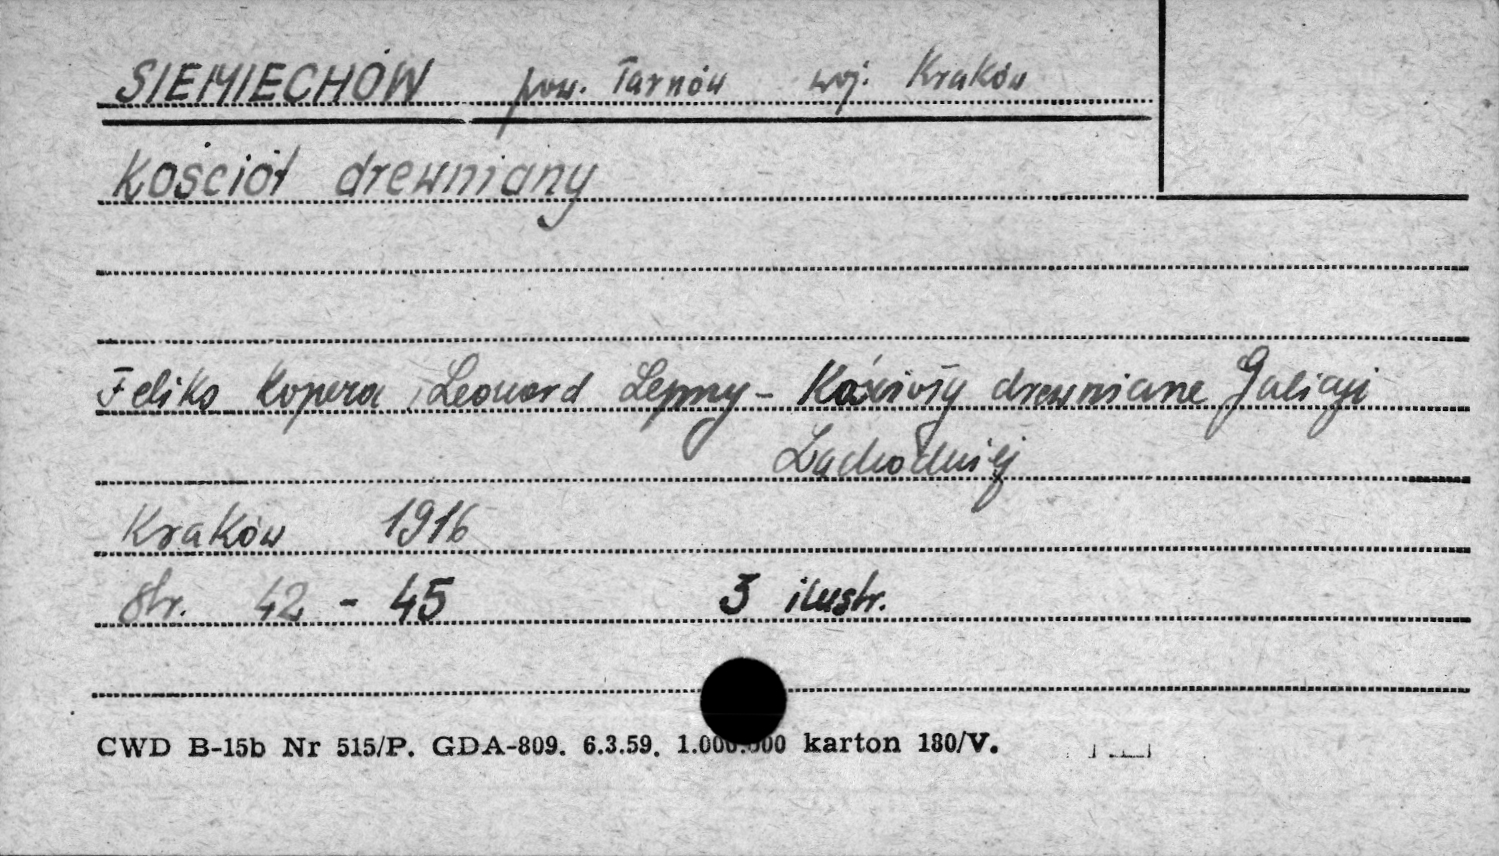 SIEMIECHÓW pow. Tarnów woj. Kraków
Kościół drewniany
Feliks Kopera, Leonard Lepszy - Kościoły drewniane Galicji
Zachodniej
Kraków 1916
str. 42 - 45 3 ilustr.
CWD B-15b Nr 515/P. GDA-809. 6.3.59. 1.000.000 karton 180/V.